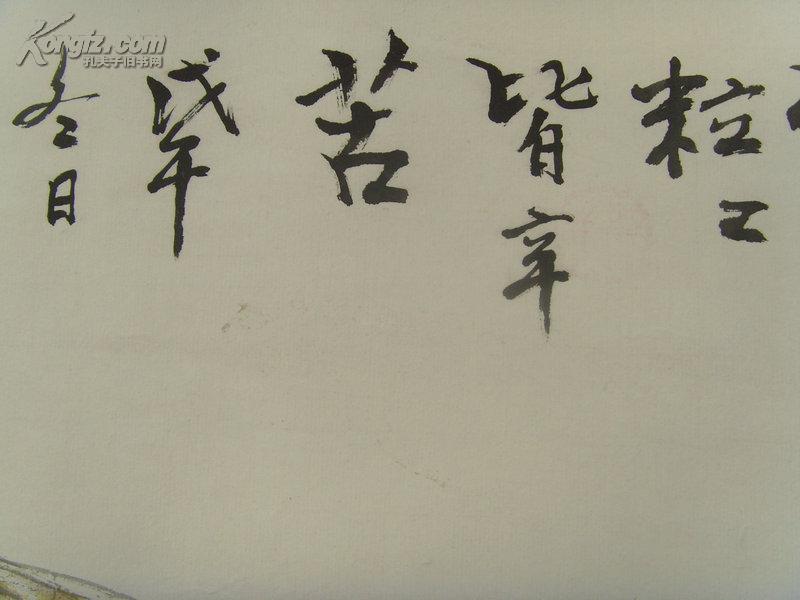 粒々
皆辛
苦
戊午
冬日
Kongfz.com
孔夫子旧书网